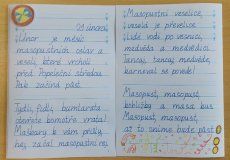 Únor
Únor je měsíc
masopustních oslav a
veselí, které vrcholí
před Popeleční středou.
Pak začíná půst.
Tydli, fidli, bumtarata
otevřete bomotře vrata!
Maškary k vám přišly
hej, začal masopustní rej
Masopustní veselice,
veselá je převelice.
Lidé vodí po vesnici,
medvěda a medvědici.
Tancuj, tancuj, medvěde,
karneval se povede!
Masopust, masopust,
koblížky a masa kus
Masopust, masopust,
až to sníme bude půst.